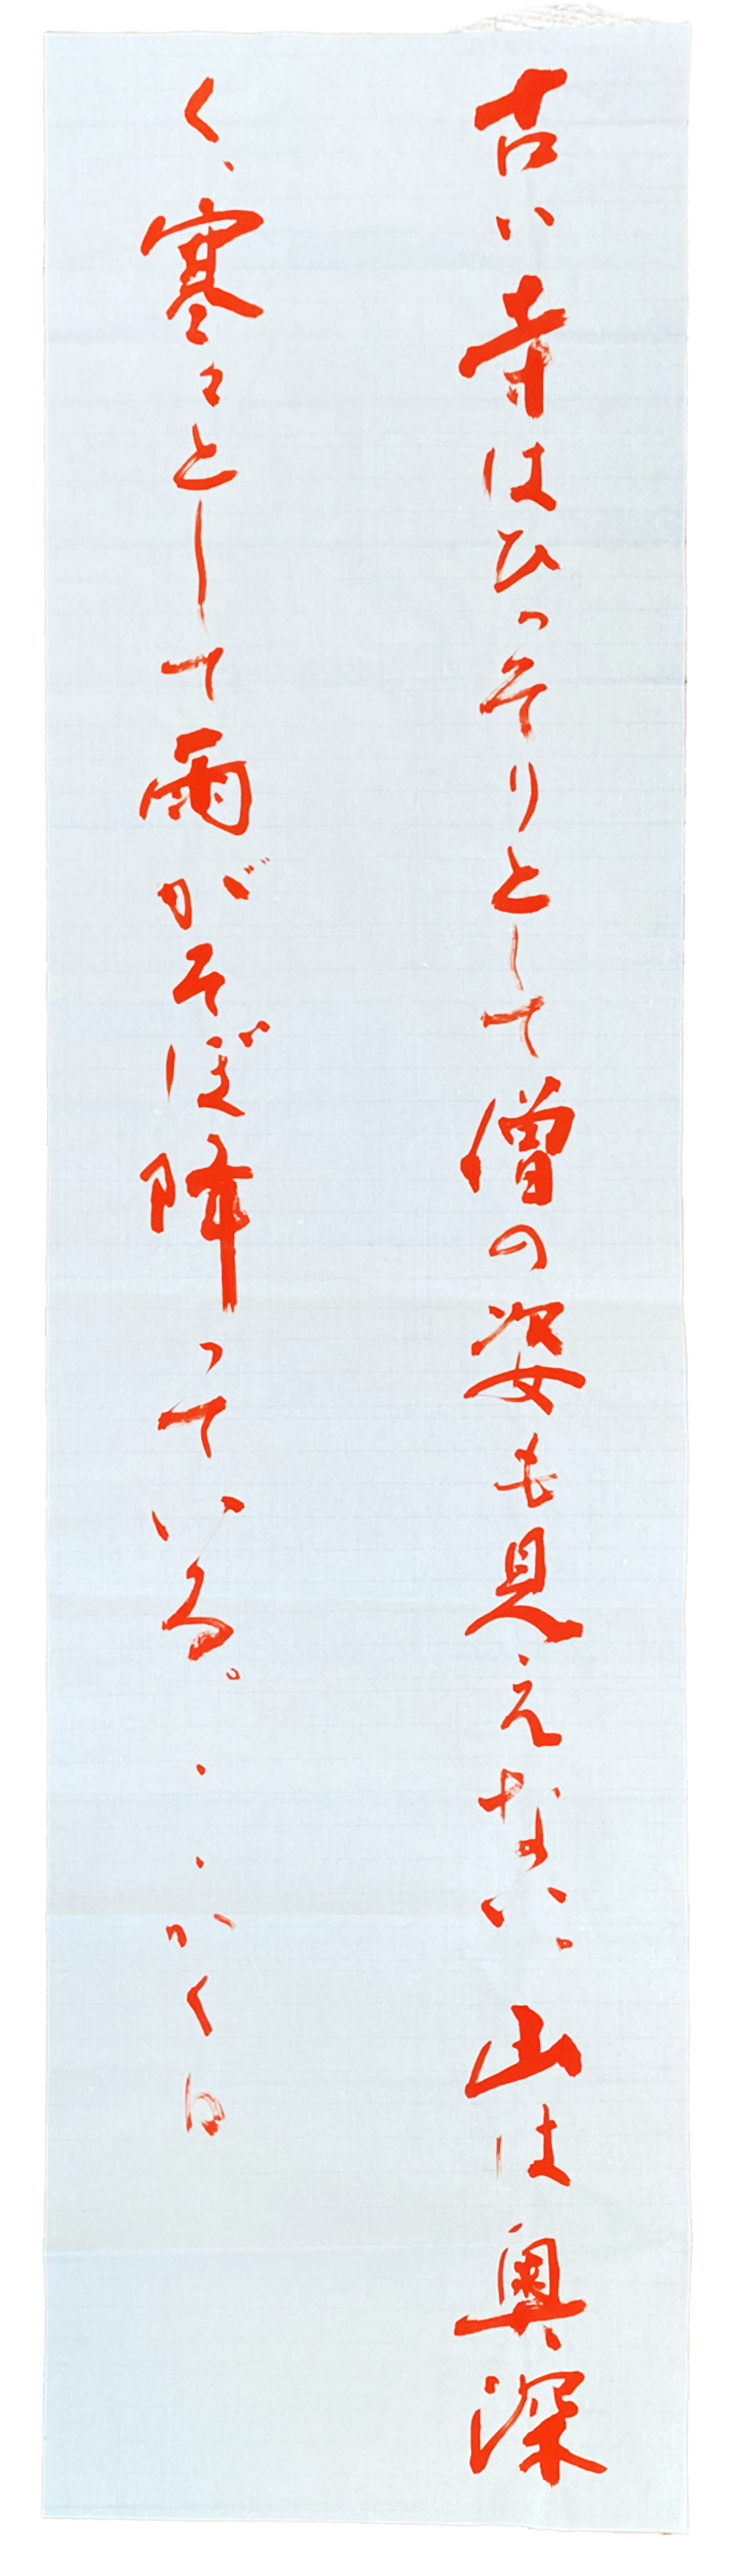 古い寺はひっそりとして僧の姿も見えない。山は奥深
く、寒々として雨がそぼ降っている。・・かくは